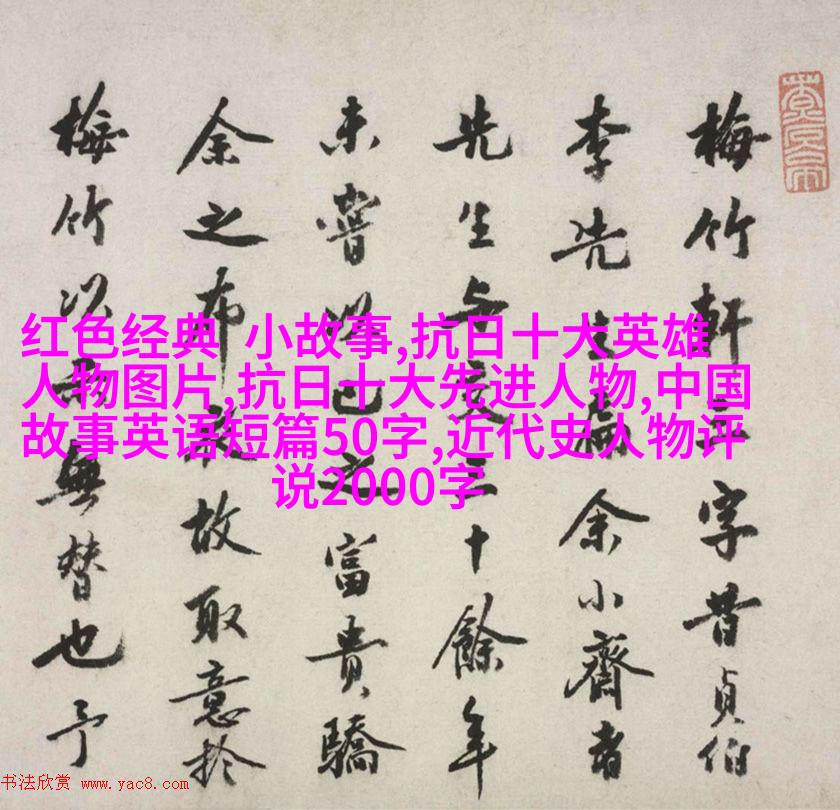 红色经典 小故事,抗日十大英雄
人物图片,抗日十大先进人物,中国
故事英语短篇50字,近代史人物评
说2000字
梅竹軒三字昔貞伯
李先生余小齋者
先生与交三十餘年
未嘗以己之富貴驕
余之布故取意於
梅竹以無替也予
书法欣赏 www.yac8.com